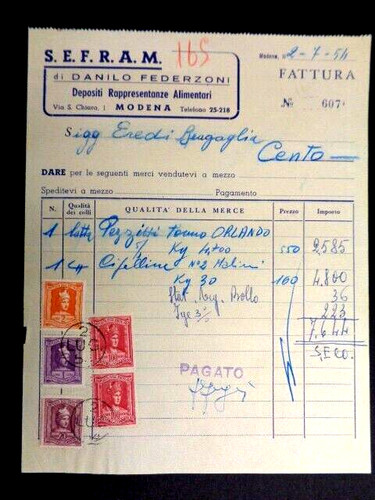 S.E.F.R.A.M.
165
di DANILO FEDERZONI
Depositi Rappresentanze Alimentari
Via S. Chiara, 1 MODENA Telefono 25-218
Modena, 2-7-54
FATTURA
N° 607
Sigg Eredi Bragaglia
Cento
DARE per le seguenti merci vendutevi a mezzo
Speditevi a mezzo Pagamento
N. Qualità dei colli QUALITÀ DELLA MERCE Prezzo Importo
1 Pezzi Tonno ORLANDO
Kg 4,700 550 2585
1 Cipolline N°2
Kg 30 160 4.800
Bollo 36
Ige 3% 223
7.644
S.E.&O.
PAGATO
2 LUG